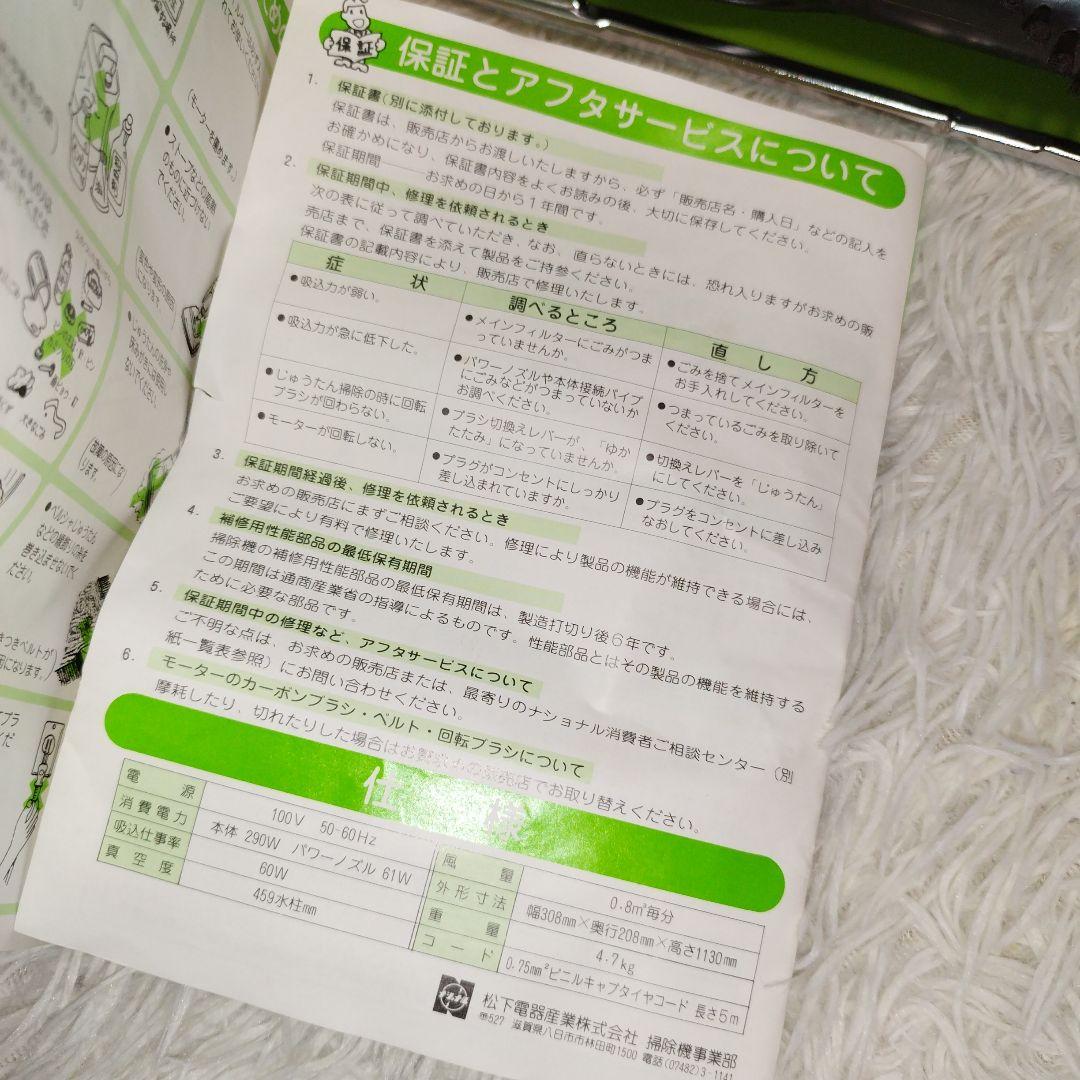 保証
保証とアフタサービスについて
1. 保証書(別に添付しております。)
保証書は、販売店からお渡しいたしますから、必ず「販売店名・購入日」などの記入を
お確かめになり、保証書内容をよくお読みの後、大切に保存してください。
保証期間――お求めの日から1年間です。
2. 保証期間中、修理を依頼されるとき
次の表に従って調べていただき、なお、直らないときには、恐れ入りますがお求めの販
売店まで、保証書を添えて製品をご持参ください。
保証書の記載内容により、販売店で修理いたします。
症状 調べるところ 直し方
●吸込力が弱い。
●メインフィルターにごみがつま
っていませんか。
●ごみを捨てメインフィルターを
お手入れしてください。
●吸込力が急に低下した。
●パワーノズルや本体接続パイプ
にごみなどがつまっていないか
お調べください。
●つまっているごみを取り除いて
ください。
●じゅうたん掃除の時に回転
ブラシが回わらない。
●ブラシ切換えレバーが、「ゆか
たたみ」になっていませんか。
●切換えレバーを「じゅうたん」
にしてください。
●モーターが回転しない。
●プラグがコンセントにしっかり
差し込まれていますか。
●プラグをコンセントに差し込み
なおしてください。
3. 保証期間経過後、修理を依頼されるとき
お求めの販売店にまずご相談ください。修理により製品の機能が維持できる場合には、
ご要望により有料で修理いたします。
4. 補修用性能部品の最低保有期間
掃除機の補修用性能部品の最低保有期間は、製造打切り後6年です。
この期間は通商産業省の指導によるものです。性能部品とはその製品の機能を維持する
ために必要な部品です。
5. 保証期間中の修理など、アフタサービスについて
ご不明な点は、お求めの販売店または、最寄りのナショナル消費者ご相談センター(別
紙一覧表参照)にお問い合わせください。
6. モーターのカーボンブラシ・ベルト・回転ブラシについて
摩耗したり、切れたりした場合はお買求めの販売店でお取り替えください。
仕様
電源 100V 50-60Hz
消費電力 本体 290W パワーノズル 61W
吸込仕事率 60W
真空度 459水柱mm
風量 0.8m³毎分
外形寸法 幅308mm×奥行208mm×高さ1130mm
重量 4.7kg
コード 0.75mm²ビニルキャブタイヤコード 長さ5m
松下電器産業株式会社 掃除機事業部
〒527 滋賀県八日市市林田町1500 電話(07482)3-1141